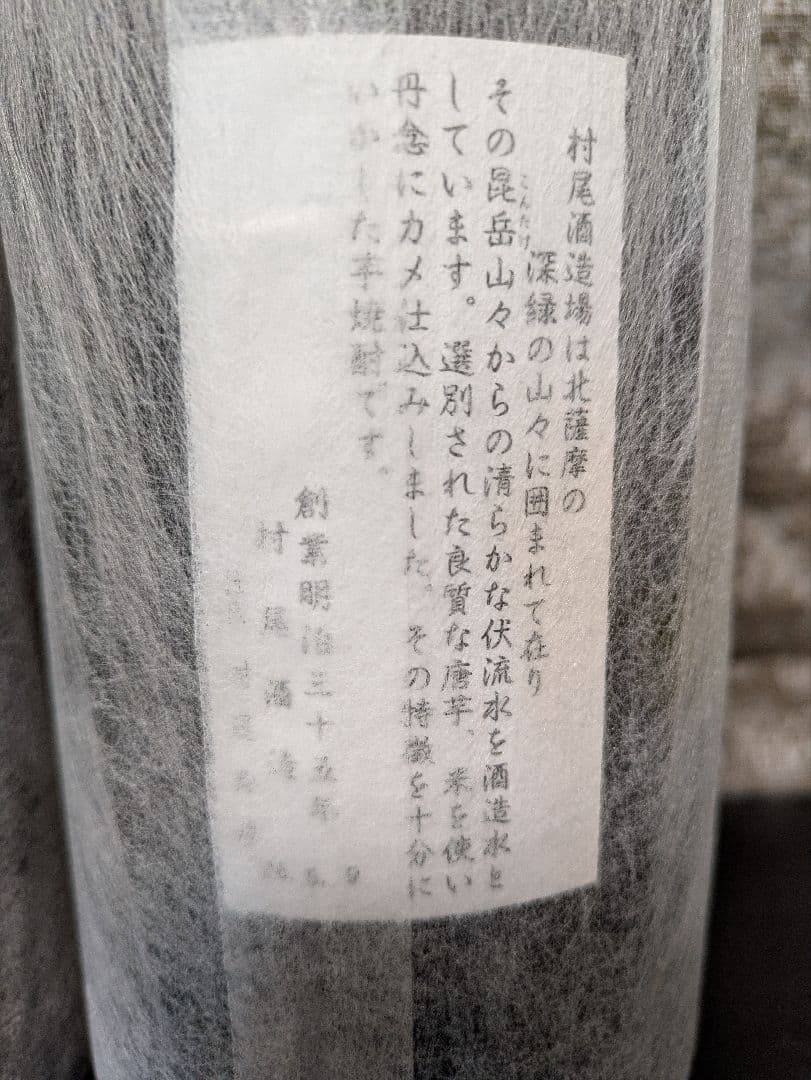 村尾酒造場は北薩摩の
深緑の山々に囲まれて在り
その昆岳山々からの清らかな伏流水を酒造水と
こんたけ
しています。選別された良質な唐芋、米を使い
丹念にカメ仕込みしました。その特徴を十分に
いかした芋焼酎です。
創業明治三十五年
村尾酒造